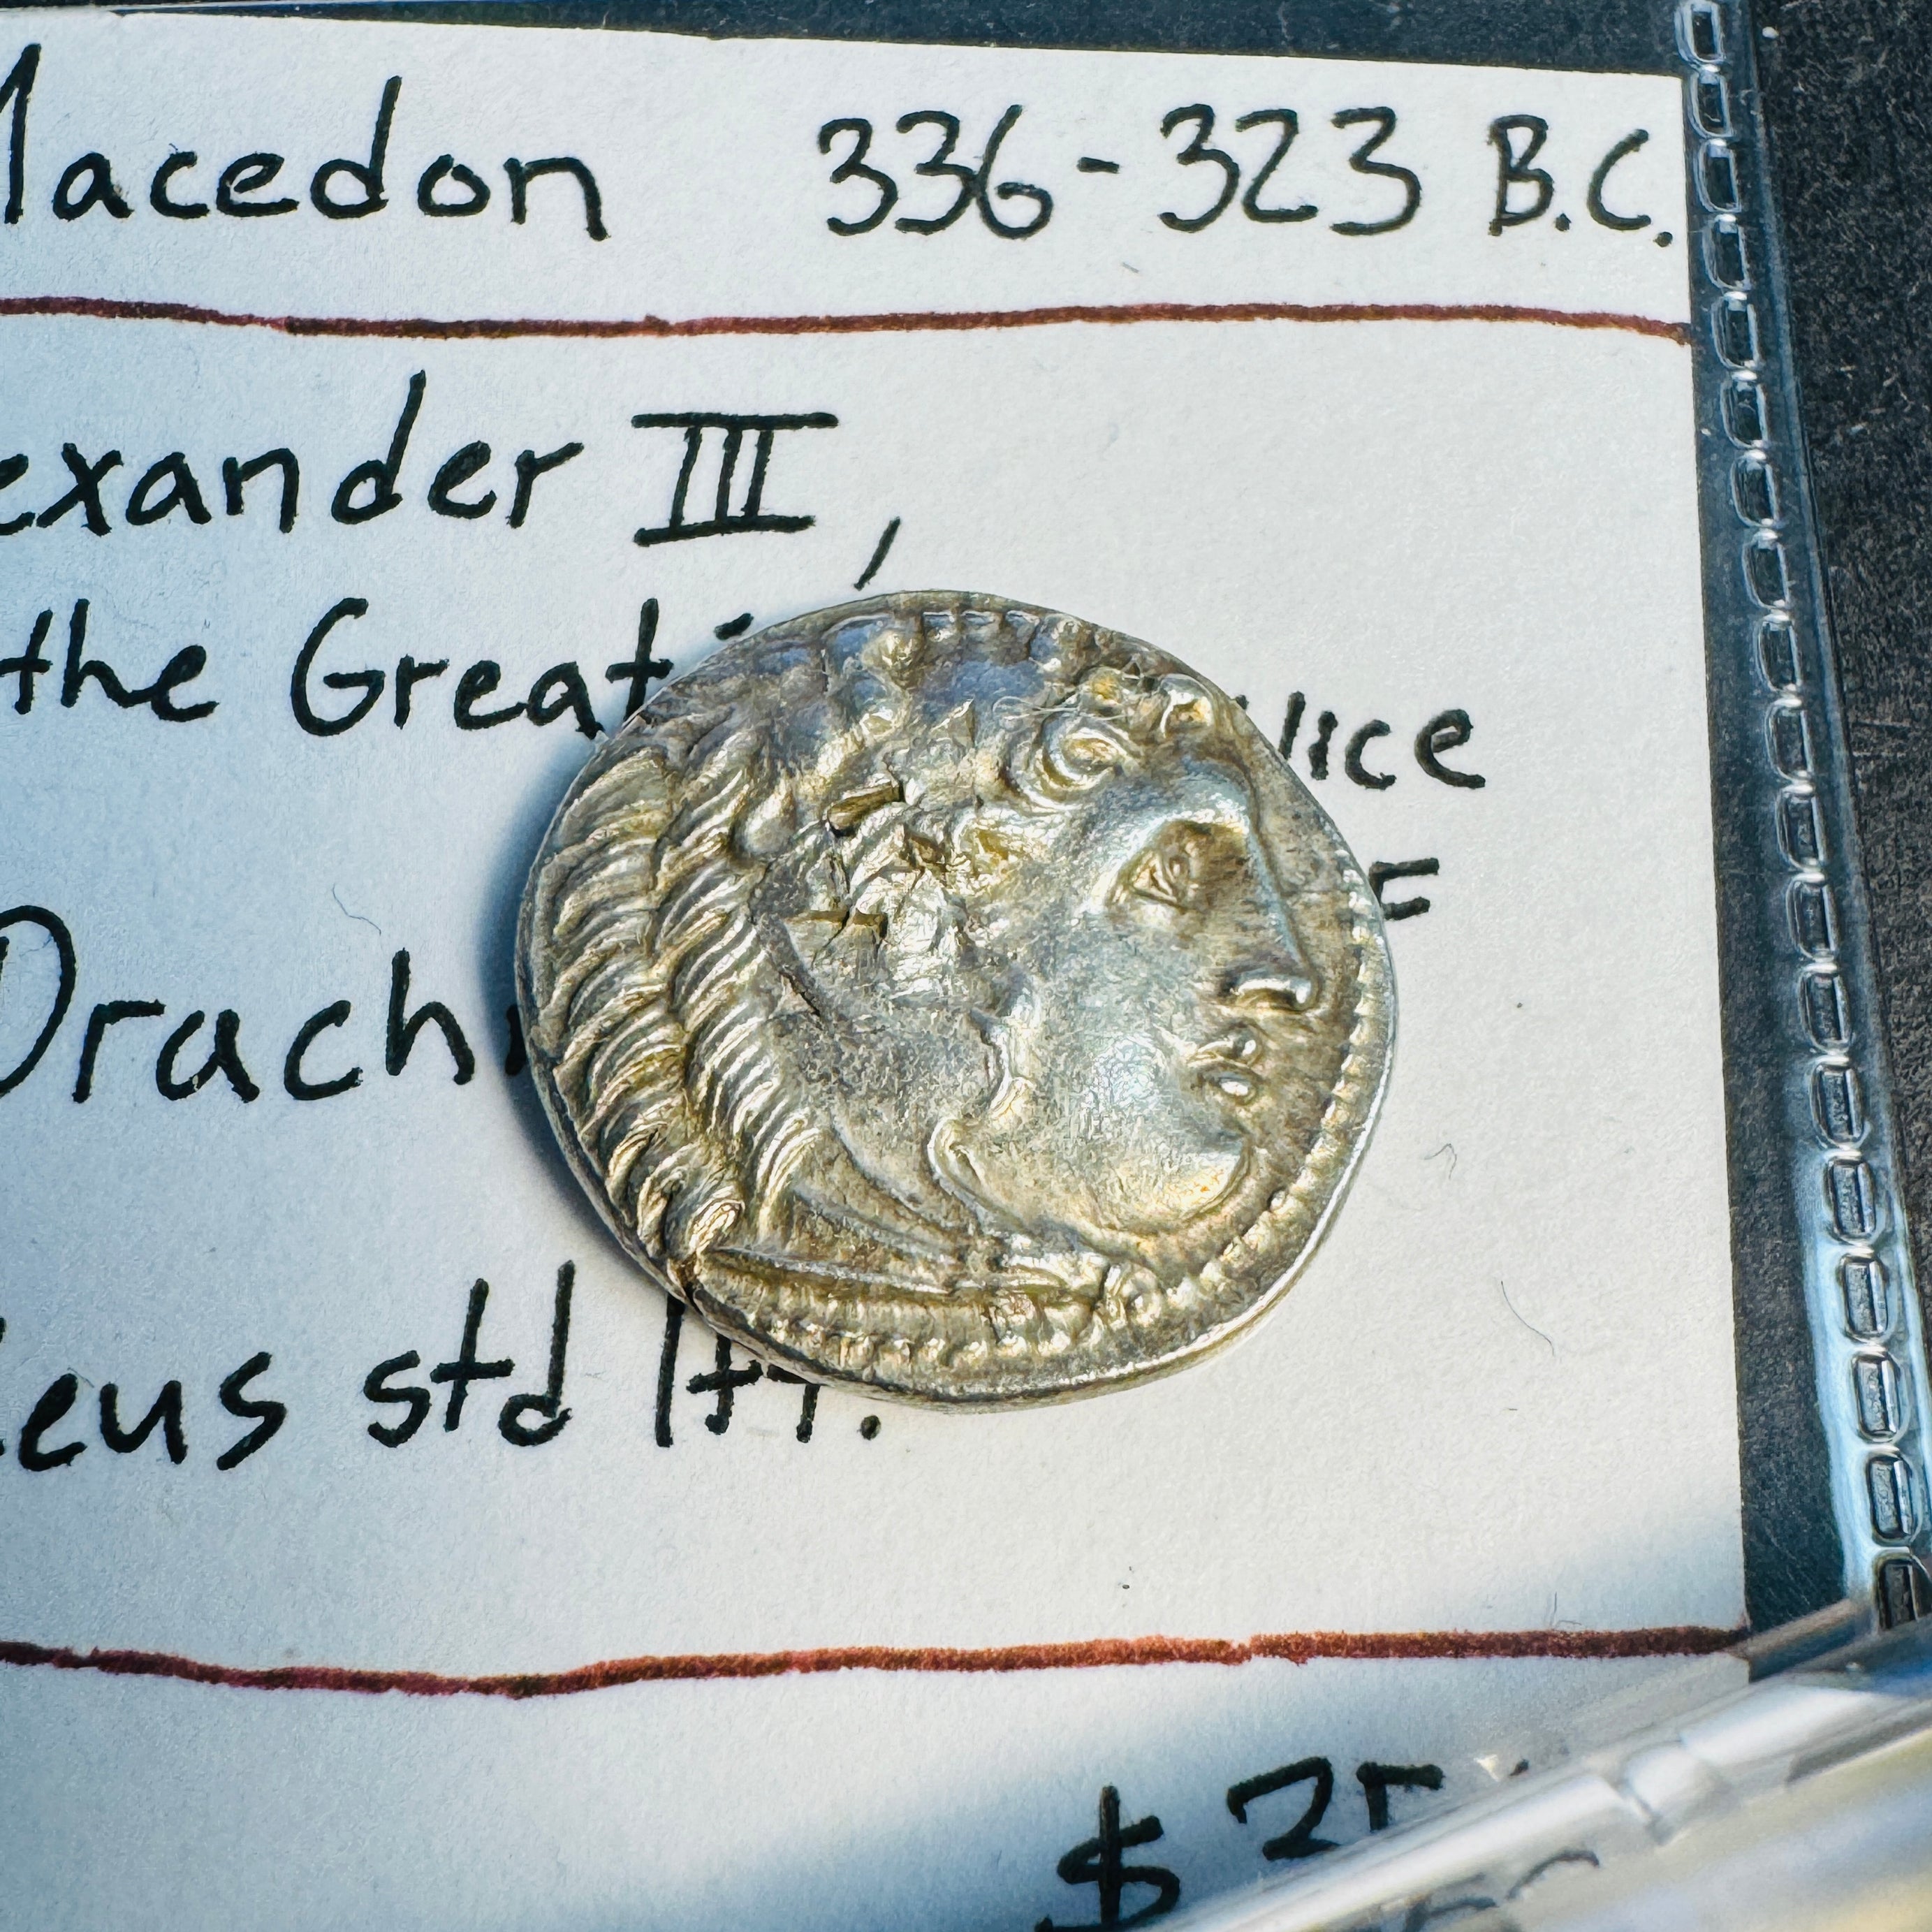 Macedon 336-323 B.C.
exander III,
the Great
Drach
eus std lft.
$